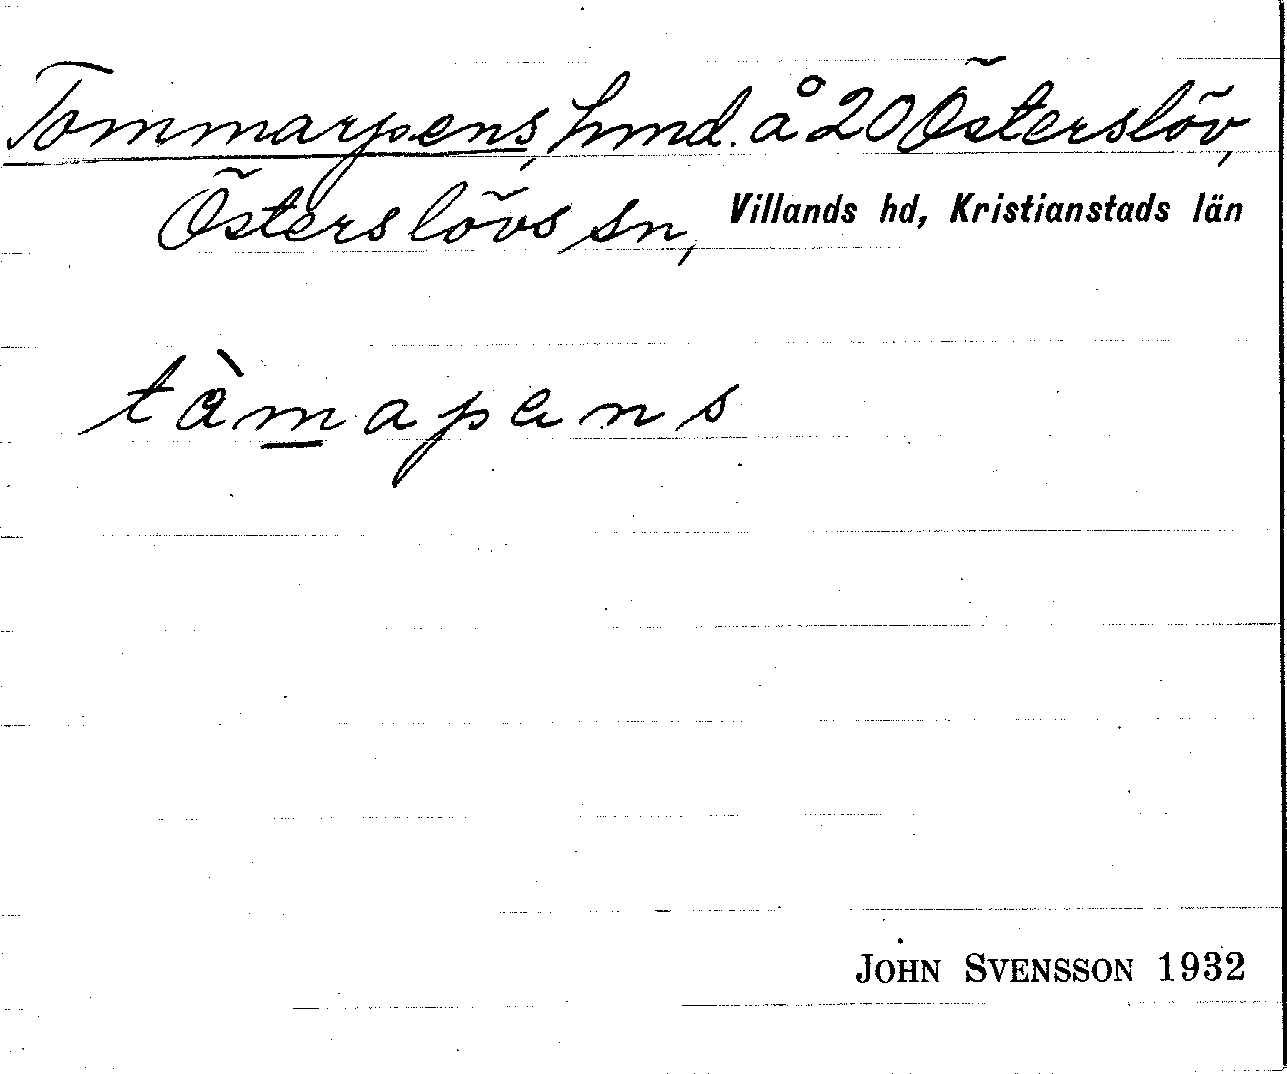 Tommarpens, hmd. å 20 Österslöv,
Österslövs sn, Villands hd, Kristianstads län
tàmapens
JOHN SVENSSON 1932